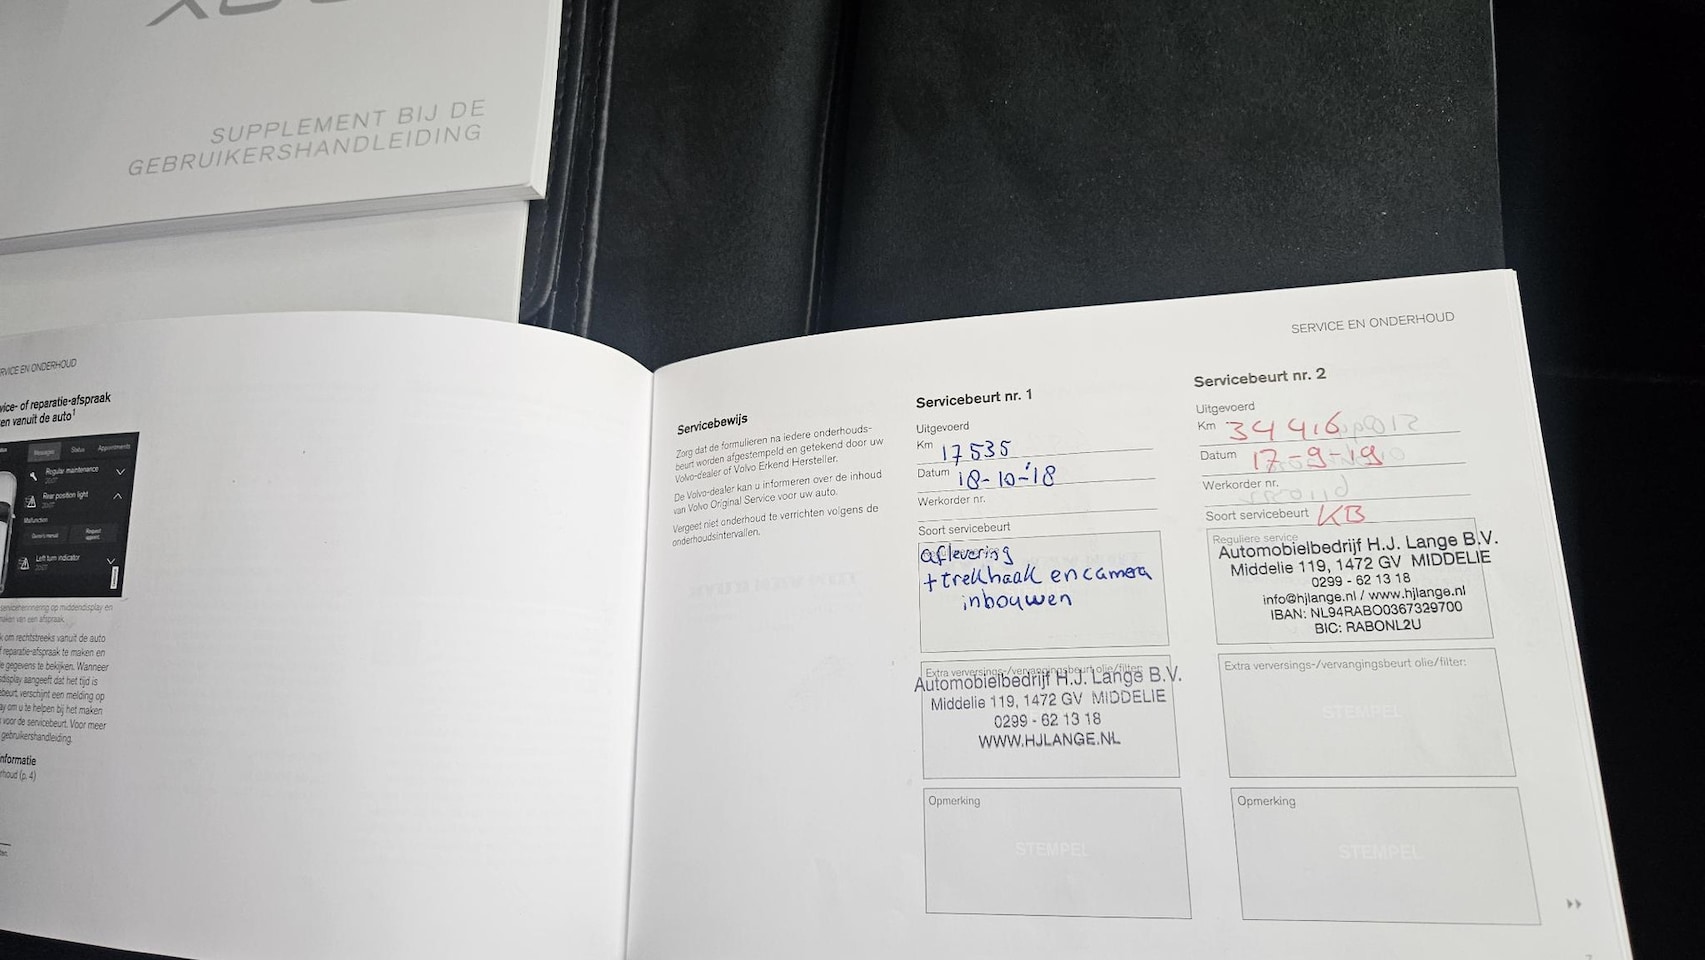 SUPPLEMENT BIJ DE
GEBRUIKERSHANDLEIDING
SERVICE EN ONDERHOUD
vice- of reparatie-afspraak
en vanuit de auto¹
Messages Status Appointments
Regular maintenance
Rear position light
Malfunction
Owner's manual Request appoint.
Left turn indicator
serviceherinnering op middendisplay en
maken van een afspraak.
k om rechtstreeks vanuit de auto
f reparatie-afspraak te maken en
e gegevens te bekijken. Wanneer
display aangeeft dat het tijd is
beurt, verschijnt een melding op
ay om u te helpen bij het maken
voor de servicebeurt. Voor meer
gebruikershandleiding.
nformatie
rhoud (p. 4)
SERVICE EN ONDERHOUD
Servicebewijs
Zorg dat de formulieren na iedere onderhouds-
beurt worden afgestempeld en getekend door uw
Volvo-dealer of Volvo Erkend Hersteller.
De Volvo-dealer kan u informeren over de inhoud
van Volvo Original Service voor uw auto.
Vergeet niet onderhoud te verrichten volgens de
onderhoudsintervallen.
Servicebeurt nr. 1
Uitgevoerd
Km 17535
Datum 18-10-'18
Werkorder nr.
Soort servicebeurt
aflevering
+ trekhaak en camera
inbouwen
Extra verversings-/vervangingsbeurt olie/filter:
Automobielbedrijf H.J. Lange B.V.
Middelie 119, 1472 GV MIDDELIE
0299 - 62 13 18
WWW.HJLANGE.NL
Opmerking
STEMPEL
Servicebeurt nr. 2
Uitgevoerd
Km 34416
Datum 17-9-19
Werkorder nr.
Soort servicebeurt KB
Reguliere service
Automobielbedrijf H.J. Lange B.V.
Middelie 119, 1472 GV MIDDELIE
0299 - 62 13 18
info@hjlange.nl / www.hjlange.nl
IBAN: NL94RABO0367329700
BIC: RABONL2U
Extra verversings-/vervangingsbeurt olie/filter:
STEMPEL
Opmerking
STEMPEL